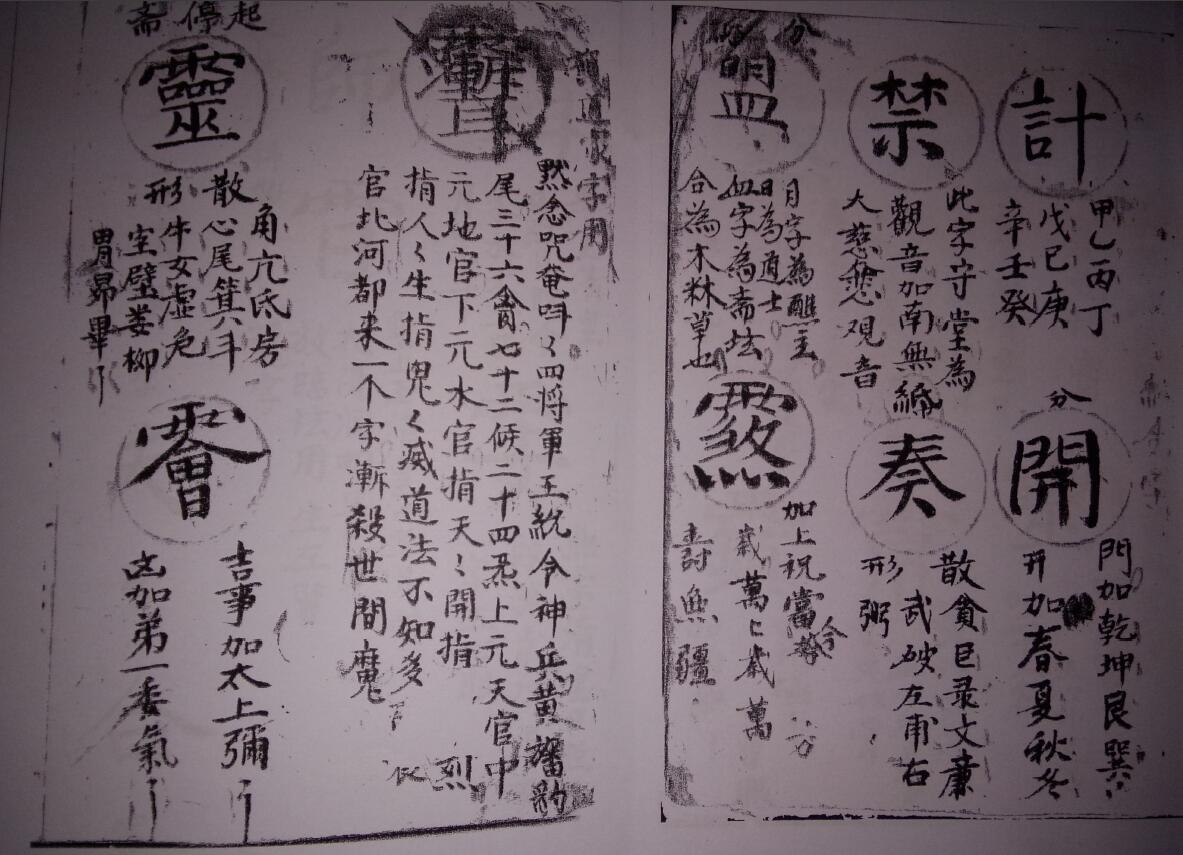 計
甲乙丙丁
戊己庚
辛壬癸
分
開
門加乾坤艮巽
开加春夏秋冬
禁
此字守堂為
觀音加南無
大慈悲观音
奏
散貪巨录文廉
武破左甫右
形
分
盟
月字為醮主
日為道士
血字為斋坛
合為木林草也
加上祝當
今
歲萬
萬歲萬
壽無疆
字用
默念咒奄吽〻四将軍王統令神兵黄旛豹
尾三十六禽七十二候二十四炁上元天官中
元地官下元水官指天〻開指
烈
指人〻生指鬼〻威道法不知多
官北河都来一个字漸殺世間魔
起
停
斋
靈
角亢氐房
散心尾箕斗
形牛女虚危
室壁娄柳
胃昴畢
吉事加太上彌
凶加第一委氣